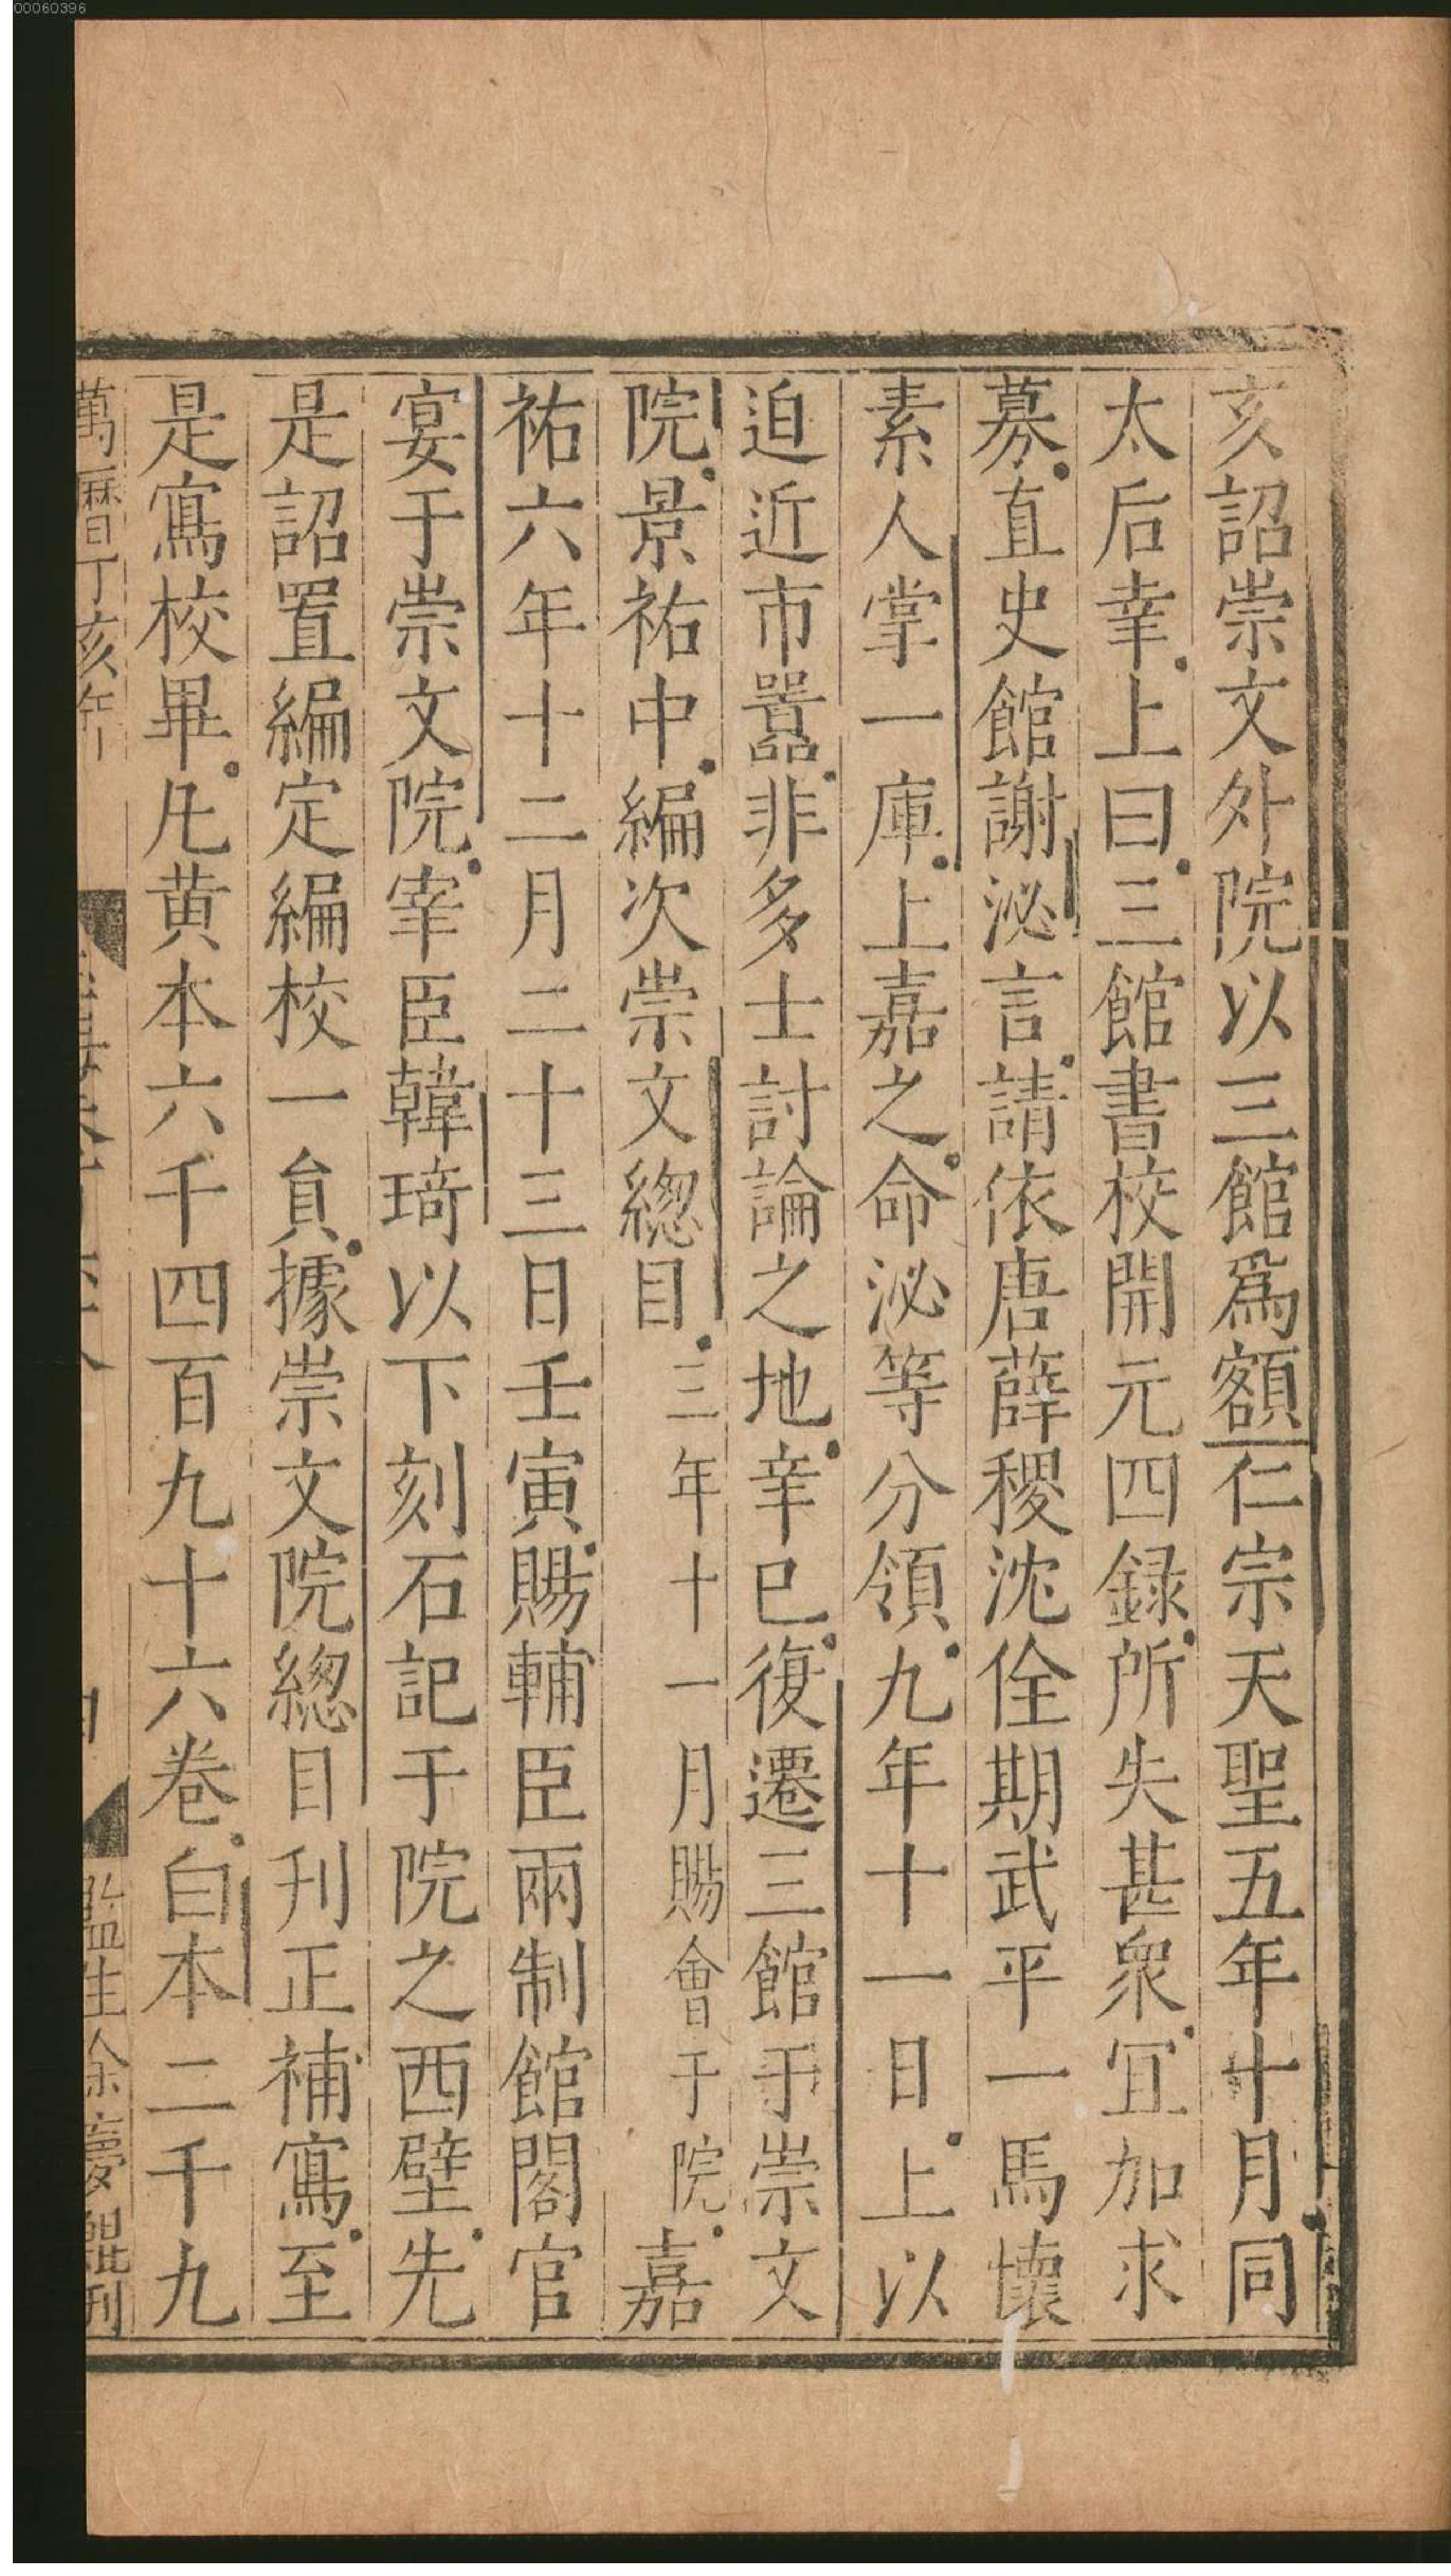 00060396
亥詔崇文外院以三館爲額仁宗天聖五年十月同
太后幸上曰三館書校開元四録所失甚衆冝加求
募直史館謝泌言請依唐薛稷沈佺期武平一馬懷
素人掌一庫上嘉之命泌等分領九年十一日上以
迫近市囂非多士討論之地辛巳復遷三館于崇文
院景祐中編次崇文緫目三年十一月賜會于院嘉
祐六年十二月二十三日壬寅賜輔臣兩制館閣官
宴于崇文院宰臣韓琦以下刻石記于院之西壁先
是詔置編定編校一貟據崇文院緫目刊正補寫至
是寫校畢凡黄本六千四百九十六卷白本二千九
萬曆丁亥年
監生余夢鯤刊